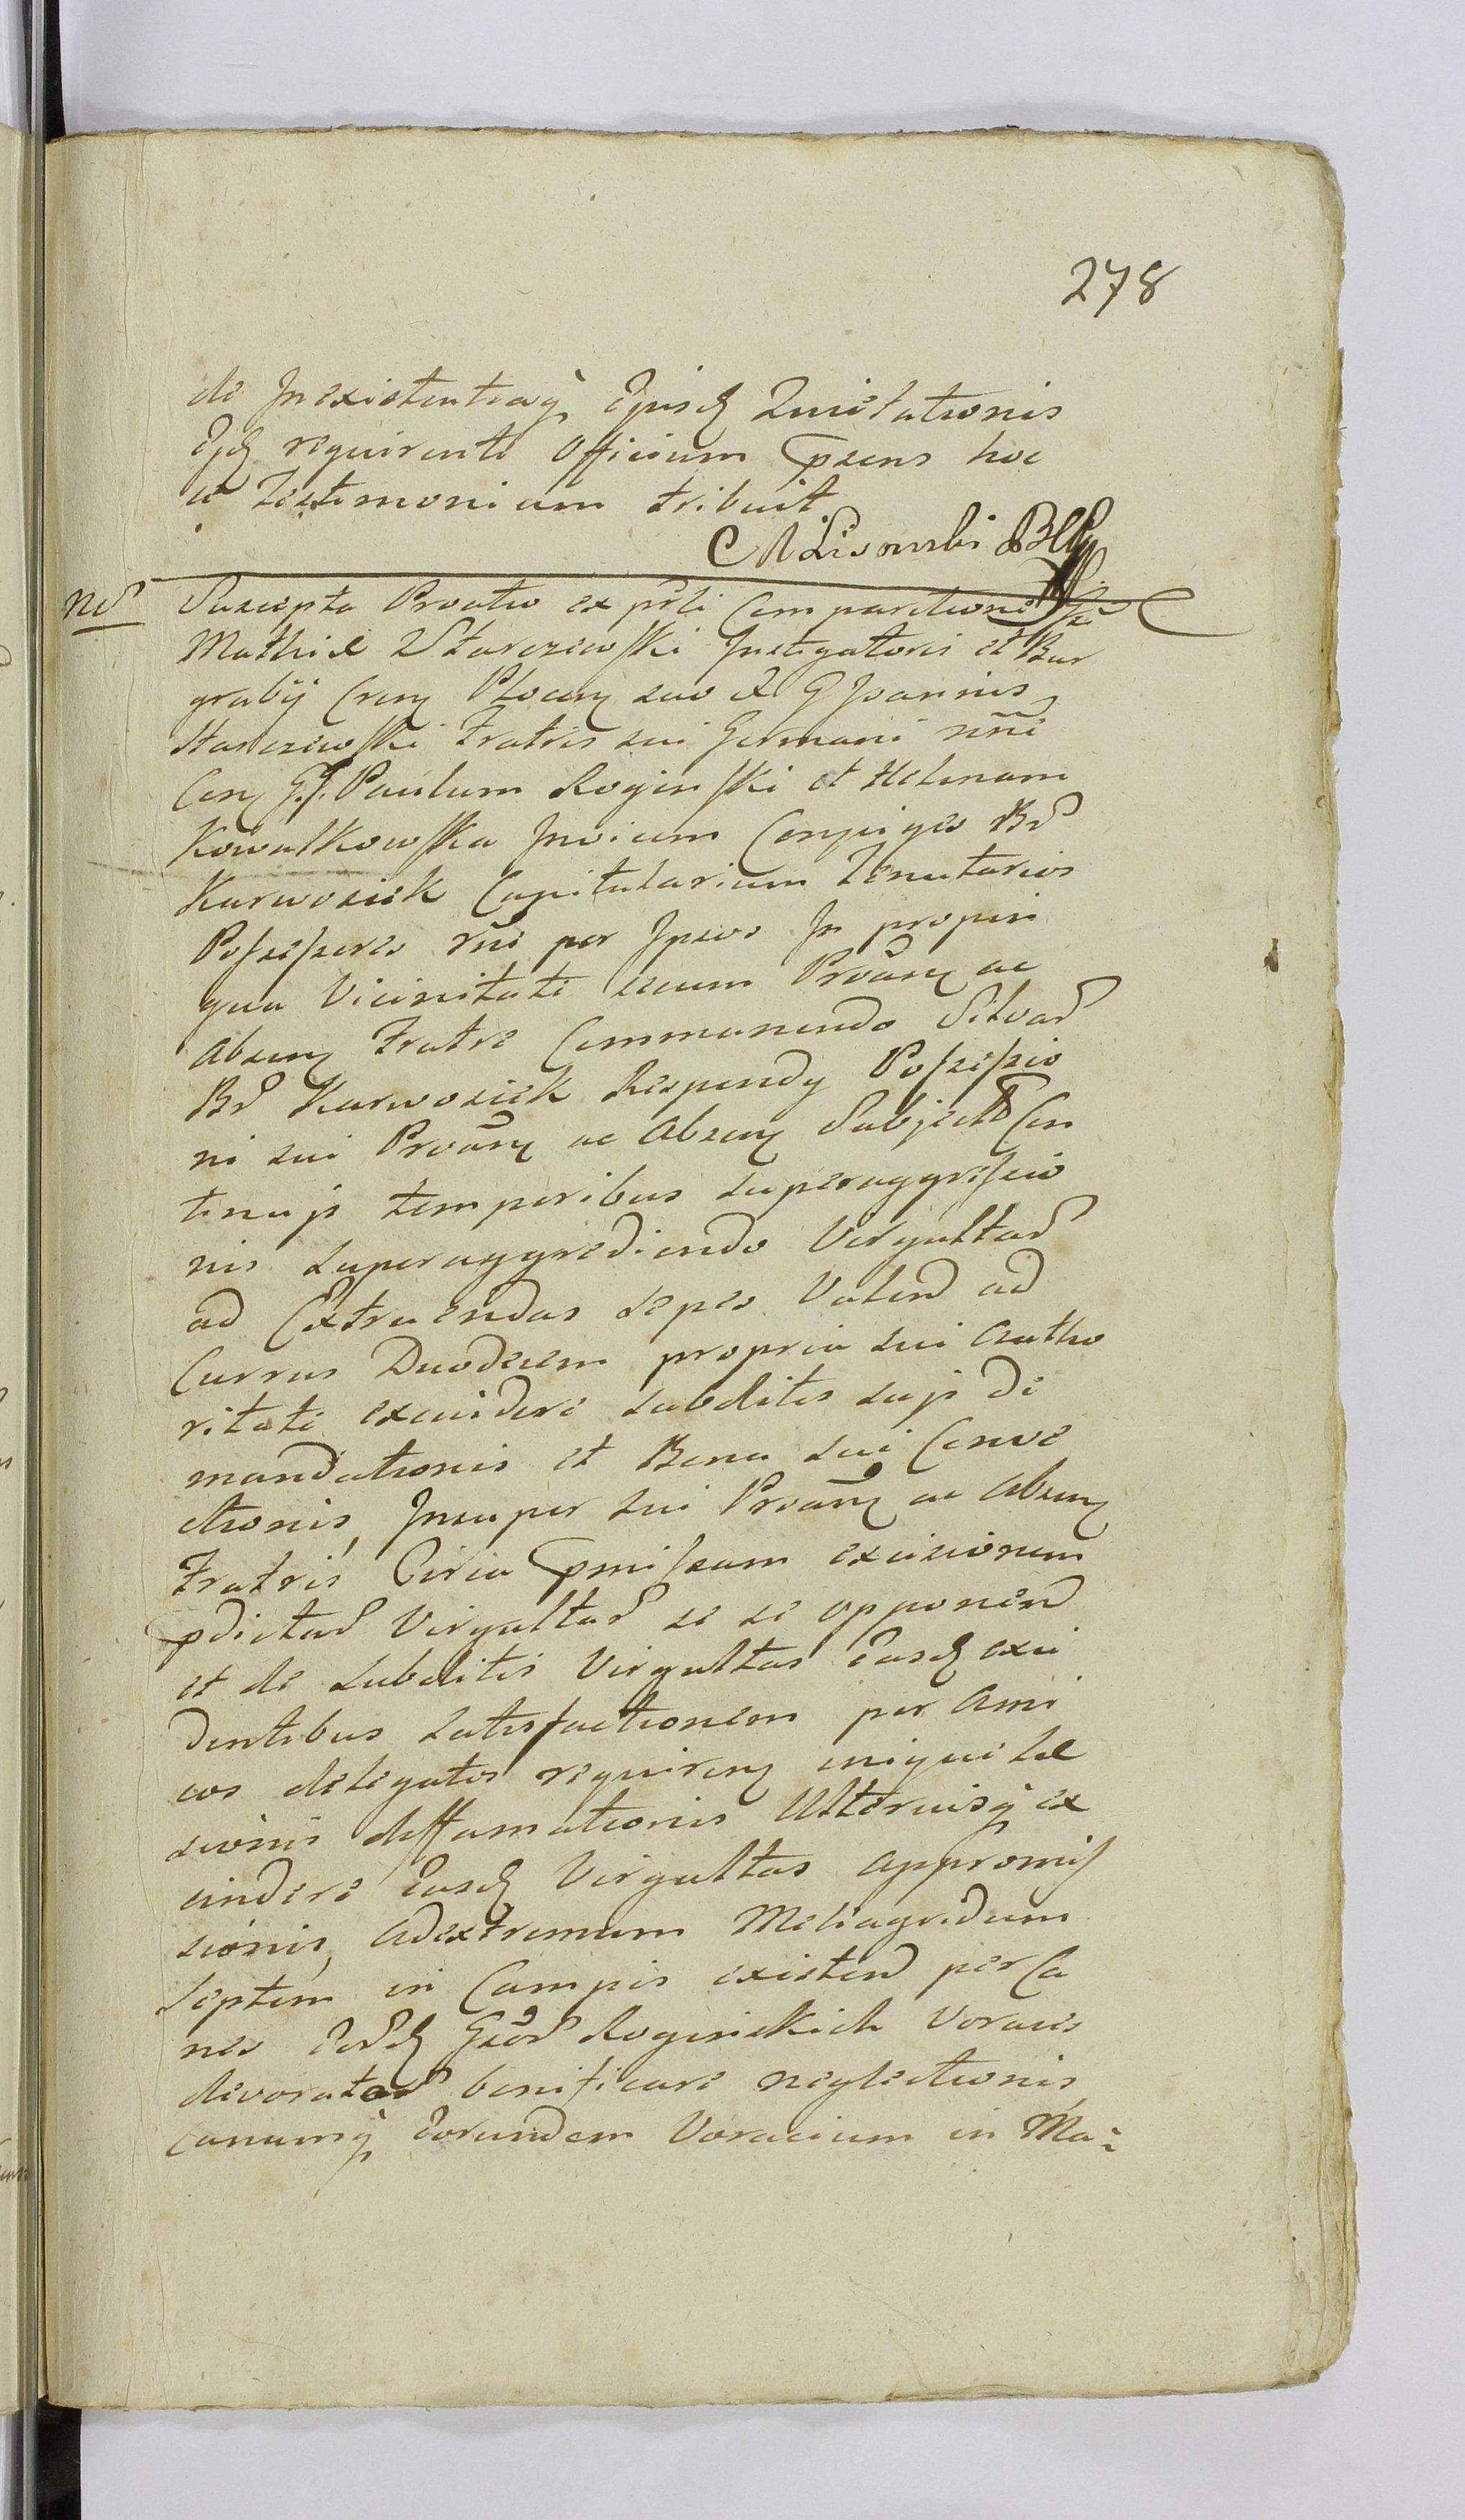 278
de Inexistentiaq̃ Ejusd Quietationis
Ejd requirenti Officium Ppsens hoc
ce Testimonium tribuit
MLisowski BCP
Nr̃
Suscepta Protatio ex psrli Comparitione
Mathiæ Starczewski Instigatoris et Bur
grabij Cren Plocen suo et G Joannis
Starczewski Fratris sui Germani nni
Con G.J. Paulum Roginski et Helenam
Kowalkowska Invicem Conjuges Br̃
Karwosiek Capitularium Tenutarios
Possessores rñe per Ipsos In propin
qua Vicinitate secum Protañ ac
absen Fratre Commanendo Silvar̃
Br̃ Karwosiek Respendy Possessio
ni sui Protañ ac Absen Subject Con
tinujs temporibus superaggressio
nis superaggrediendo Virgultar̃
ad Extruendas sepes Valend ad
Currus Duodecem propria sui Autho
ritate excidere subditis sujs de
mandationis et Bona sui Conve
ctionis, Insuper sui Protañ ac Absen
Fratris, Circa Ppmissam excisionem
Ppdictar̃ Virgultar̃ se se opponend
et de subditis Virgultas Easd exci
dentibus satisfactionem per Ami
cos delegatos requiren inique læ
sionis deffamationis Ulteriusq̃ ex
cindere Easd Virgultas appromis
sionis, adextremum Meliagridum
septem in Campis existend per Ca
nes Eor̃d Gsor̃ Roginskich Voraces
devorator̃ benificare neglectionis
canumq̃ Eorundem Voracium in Ma-